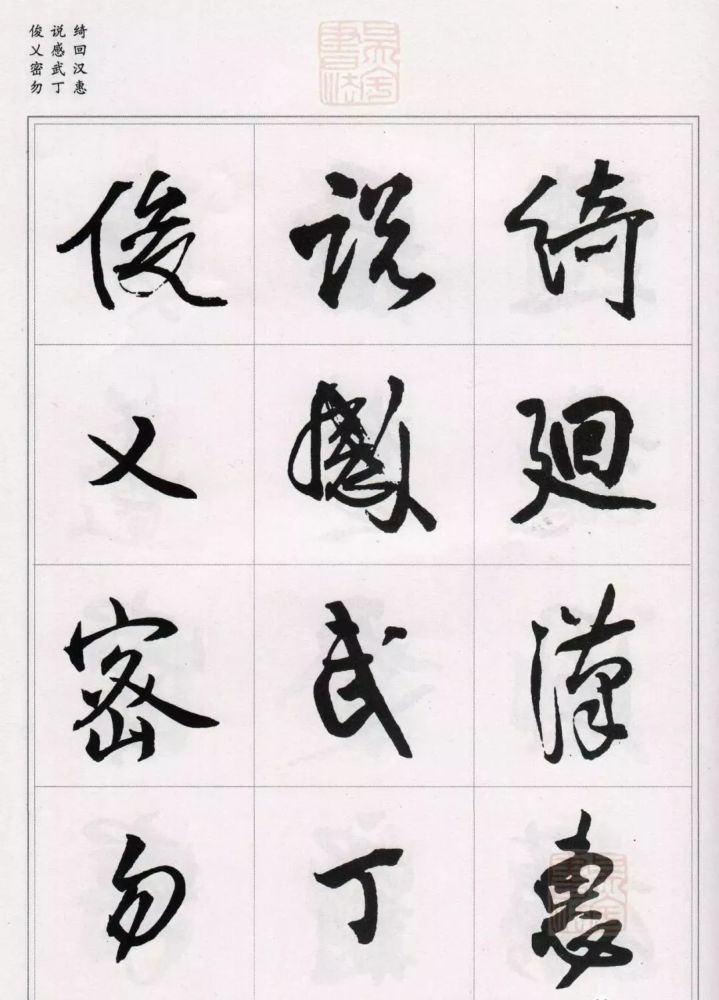 绮回汉惠
说感武丁
俊乂密勿
绮廻漢惠
说感武丁
俊乂密勿